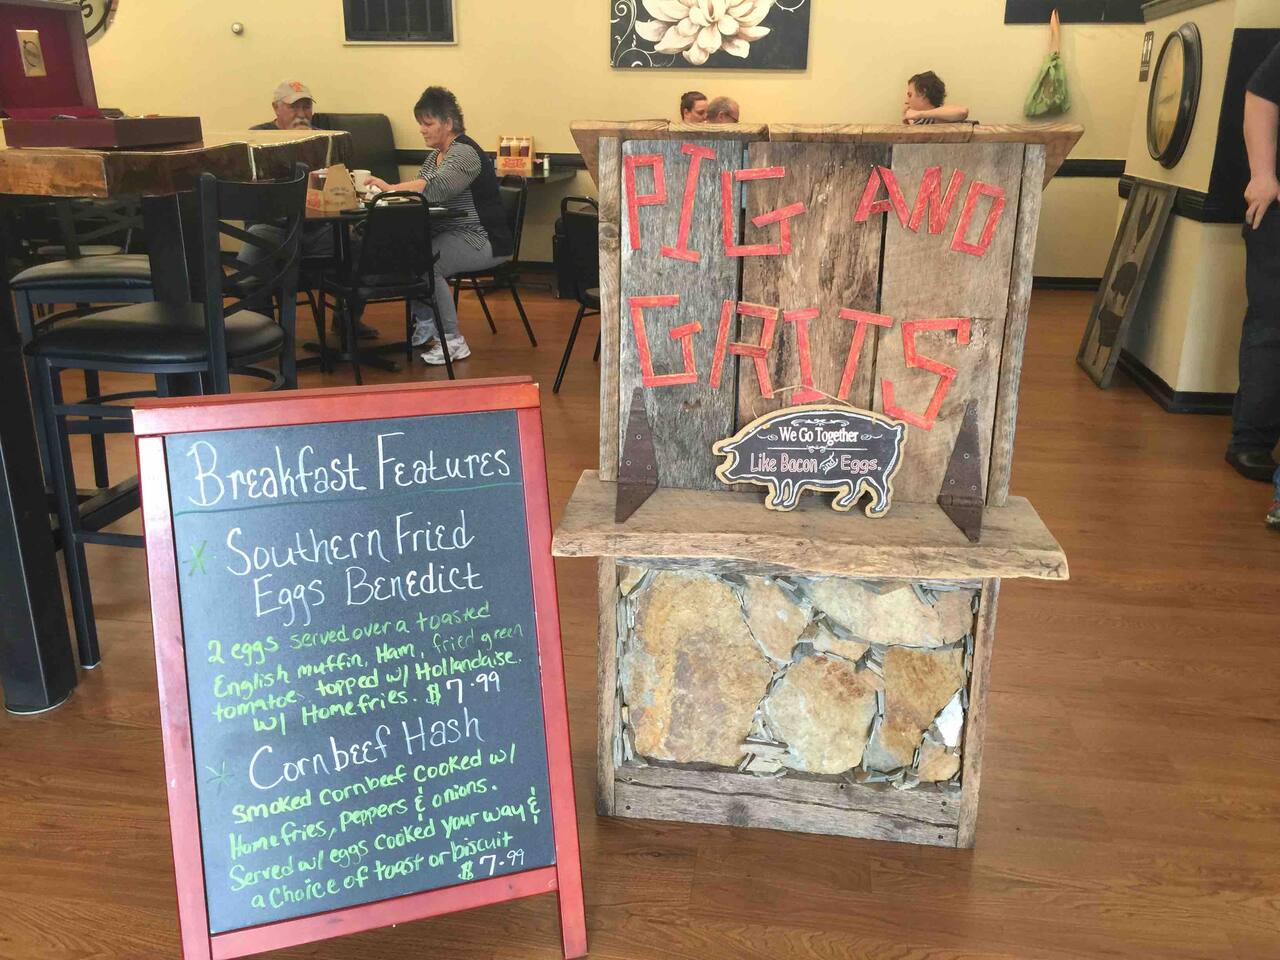 PIG AND
GRITS
We Go Together
Like Bacon and Eggs.
Breakfast Features
* Southern Fried
Eggs Benedict
2 eggs served over a toasted
English muffin, Ham, fried green
tomatoe, topped w/ Hollandaise.
w/ Homefries. $7.99
* Cornbeef Hash
Smoked cornbeef cooked w/
Homefries, peppers & onions.
Served w/ eggs cooked your way &
a choice of toast or biscuit
$7.99